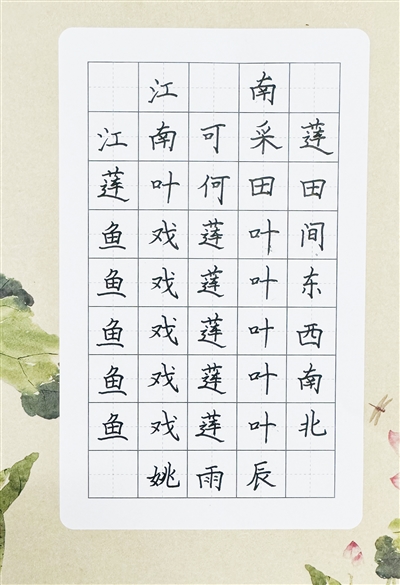 江南
江南可采莲
莲叶何田田
鱼戏莲叶间
鱼戏莲叶东
鱼戏莲叶西
鱼戏莲叶南
鱼戏莲叶北
姚雨辰